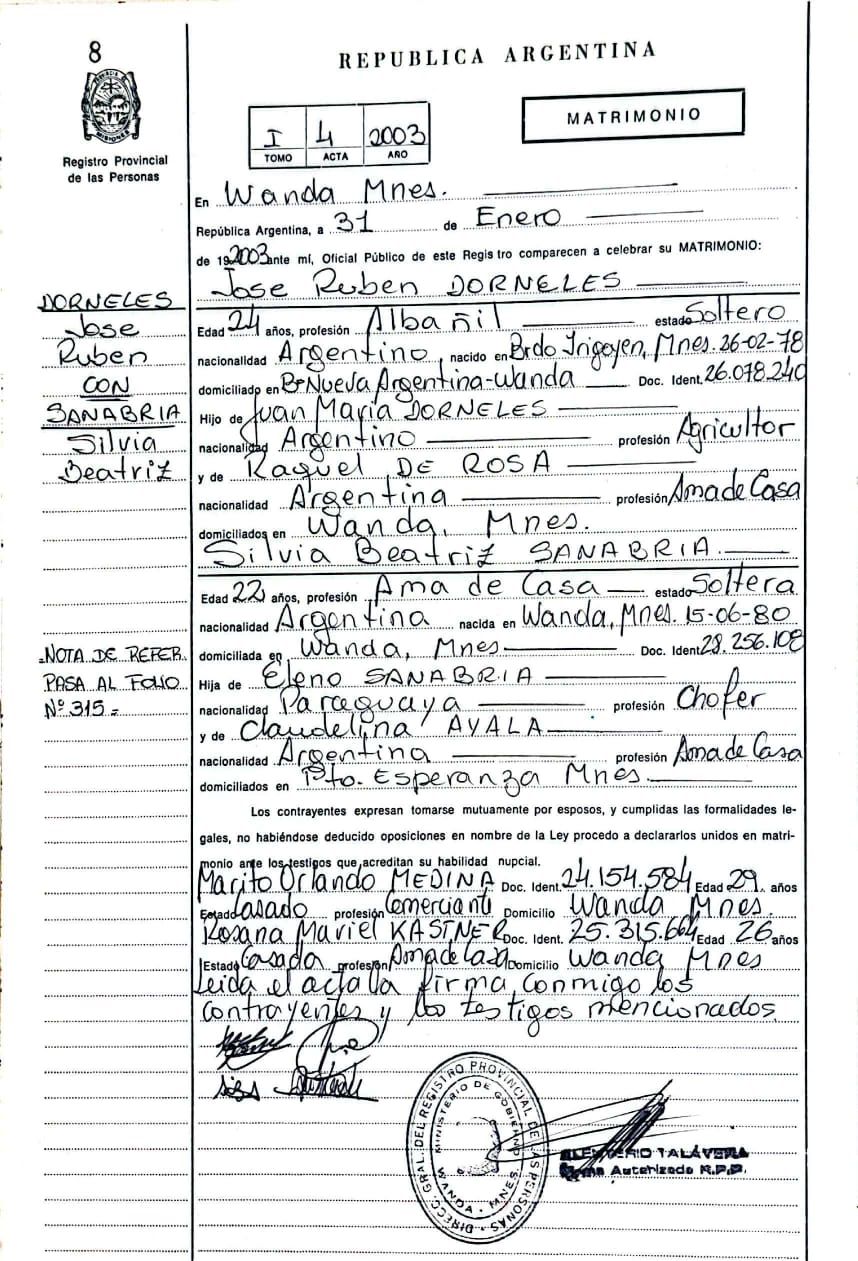 8
REPUBLICA ARGENTINA
MATRIMONIO
I 4 2003
TOMO ACTA AÑO
Registro Provincial
de las Personas
En Wanda Mnes.
República Argentina, a 31 de Enero
de 192003 ante mí, Oficial Público de este Registro comparecen a celebrar su MATRIMONIO:
Jose Ruben DORNELES
DORNELES
Jose
Ruben
CON
SANABRIA
Silvia
Beatriz
Edad 24 años, profesión Albañil estado Soltero
nacionalidad Argentino, nacido en Brdo Irigoyen, Mnes. 26-02-78
domiciliado en Bº Nueva Argentina-Wanda Doc. Ident. 26.078.240
Hijo de Juan Maria DORNELES
nacionalidad Argentino profesión Agricultor
y de Raquel DE ROSA
nacionalidad Argentina profesión Ama de Casa
domiciliados en Wanda, Mnes.
Silvia Beatriz SANABRIA
Edad 22 años, profesión Ama de Casa estado Soltera
nacionalidad Argentina nacida en Wanda, Mnes. 15-06-80
domiciliada en Wanda, Mnes Doc. Ident. 28.256.108
Hija de Eleno SANABRIA
nacionalidad Paraguaya profesión Chofer
y de Claudelina AYALA
nacionalidad Argentina profesión Ama de Casa
domiciliados en Pto. Esperanza Mnes.
=NOTA DE REFER.
PASA AL FOLIO
Nº 315=
Los contrayentes expresan tomarse mutuamente por esposos, y cumplidas las formalidades le-
gales, no habiéndose deducido oposiciones en nombre de la Ley procedo a declararlos unidos en matri-
monio ante los testigos que acreditan su habilidad nupcial.
Marito Orlando MEDINA Doc. Ident. 24.154.584 Edad 29 años
Estado Casado profesión Comerciante Domicilio Wanda Mnes.
Rosana Mariel KASTNER Doc. Ident. 25.315.664 Edad 26 años
Estado Casada profesión Ama de Casa Domicilio Wanda Mnes
Leida el acta la firma conmigo los
contrayentes y los testigos mencionados
DIRECC. GRAL. DEL REGISTRO PROVINCIAL DE LAS PERSONAS
MINISTERIO DE GOBIERNO
WANDA - MNES.
ELEUTERIO TALAVERA
Firma Autorizada R.P.P.